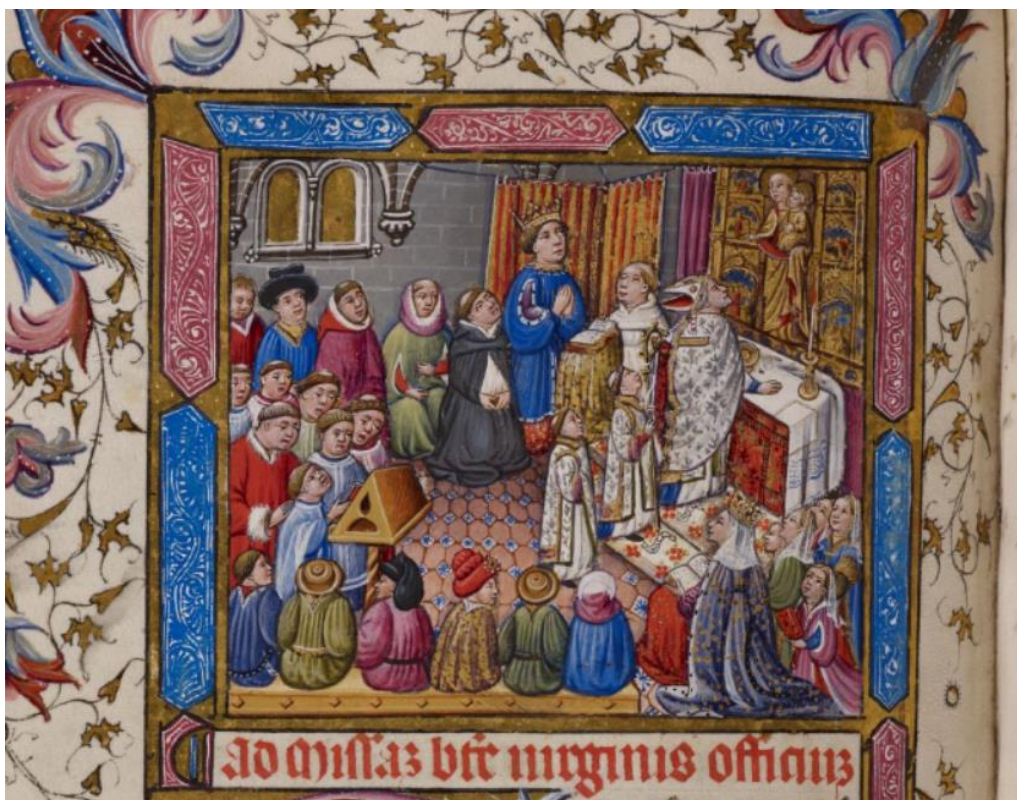 ad Missaz btẽ uirginis officiuz